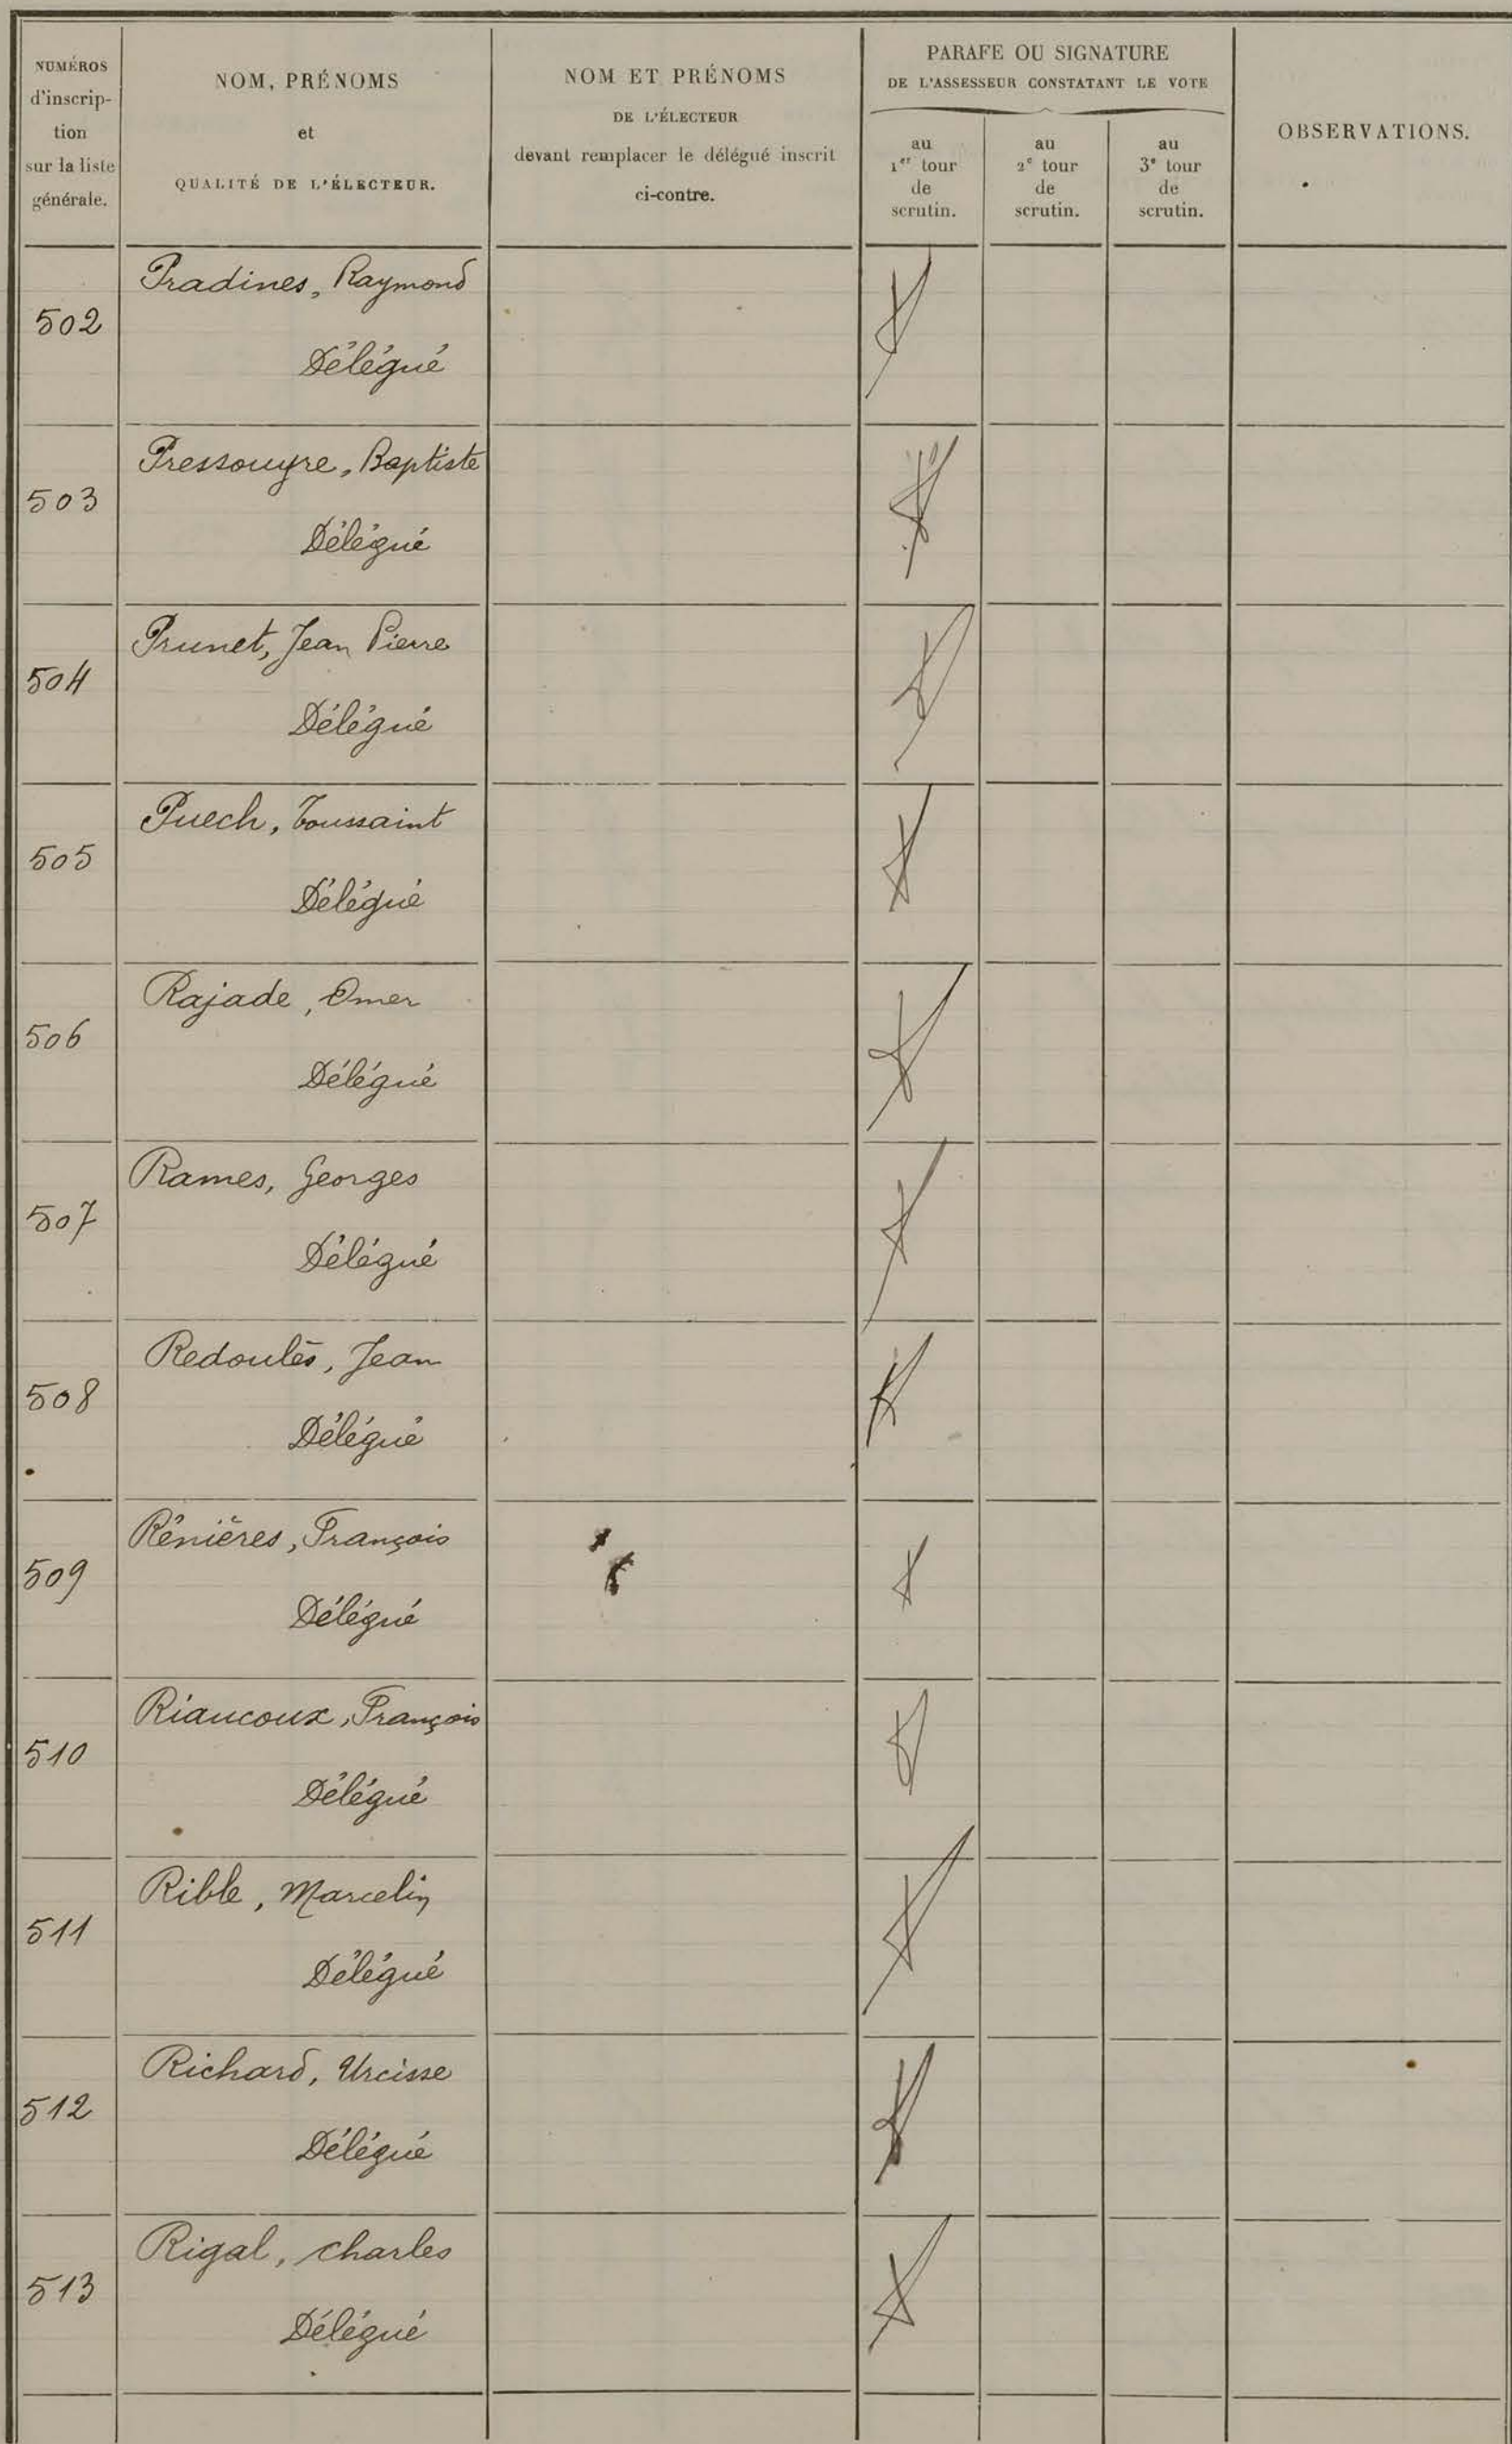 NUMÉROS
d'inscrip-
tion
sur la liste
générale.
NOM, PRÉNOMS
et
QUALITÉ DE L'ÉLECTEUR.
NOM ET PRÉNOMS
DE L'ÉLECTEUR
devant remplacer le délégué inscrit
ci-contre.
PARAFE OU SIGNATURE
DE L'ASSESSEUR CONSTATANT LE VOTE
au
1er tour
de
scrutin.
au
2e tour
de
scrutin.
au
3e tour
de
scrutin.
OBSERVATIONS.
502
Pradines, Raymond
Délégué
503
Pressouyre, Baptiste
Délégué
504
Prunet, Jean Pierre
Délégué
505
Puech, Toussaint
Délégué
506
Rajade, Omer
Délégué
507
Rames, Georges
Délégué
508
Redoulès, Jean
Délégué
509
Rénières, François
Délégué
510
Riaucoux, François
Délégué
511
Rible, Marcelin
Délégué
512
Richard, Urcisse
Délégué
513
Rigal, charles
Délégué